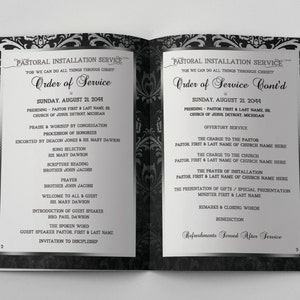 PASTORAL INSTALLATION SERVICE
"FOR WE CAN DO ALL THINGS THROUGH CHRIST"
Order of Service
SUNDAY, AUGUST 21, 2044
PRESIDING - PASTOR FIRST & LAST NAME, SR.
CHURCH OF JESUS, DETROIT, MICHIGAN
PRAISE & WORSHIP BY CONGREGATION
PROCESSION OF HONOREES
ESCORTED BY DEACON JONES & SIS MARY DAWSON
SONG SELECTION
SIS MARY DAWSON
SCRIPTURE READING
BROTHER JOHN JACOBS
PRAYER
BROTHER JOHN JACOBS
WELCOME TO ALL & GUEST
SIS MARY DAWSON
INTRODUCTION OF GUEST SPEAKER
BRO PAUL DAWSON
THE SPOKEN WORD
GUEST SPEAKER PASTOR FIRST & LAST NAME
INVITATION TO DISCIPLESHIP
2
PASTORAL INSTALLATION SERVICE
"FOR WE CAN DO ALL THINGS THROUGH CHRIST"
Order of Service Cont'd
SUNDAY, AUGUST 21, 2044
PRESIDING - PASTOR FIRST & LAST NAME, SR.
CHURCH OF JESUS, DETROIT, MICHIGAN
OFFERTORY SERVICE
THE CHARGE TO THE PASTOR
PASTOR FIRST & LAST NAME OF CHURCH NAME HERE
THE CHARGE TO THE CHURCH
PASTOR FIRST & LAST NAME OF CHURCH NAME HERE
THE PRAYER OF INSTALLATION
PASTOR FIRST & LAST NAME OF CHURCH NAME HERE
THE PRESENTATION OF GIFTS / SPECIAL PRESENTATION
MINISTER FIRST & LAST NAME
REMARKS & CLOSING WORDS
BENEDICTION
Refreshments Served After Service
3